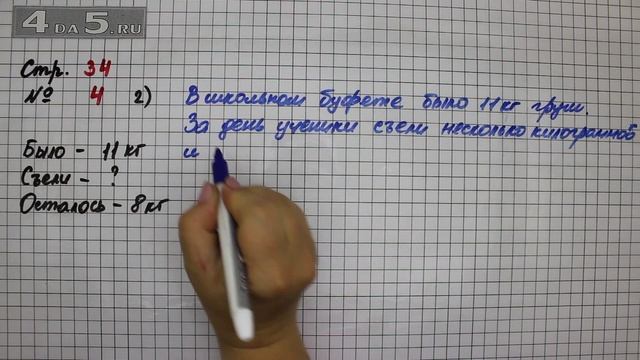 4 DA 5.RU
Стр. 34
№ 4 2) В школьном буфете было 11 кг груш.
За день ученики съели несколько килограммов
Было - 11 кг и
Съели - ?
Осталось - 8 кг